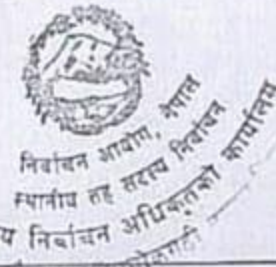 निर्वाचन आयोग, नेपाल
स्थानीय तह सदस्य निर्वाचन
निर्वाचन अधिकृतको कार्यालय